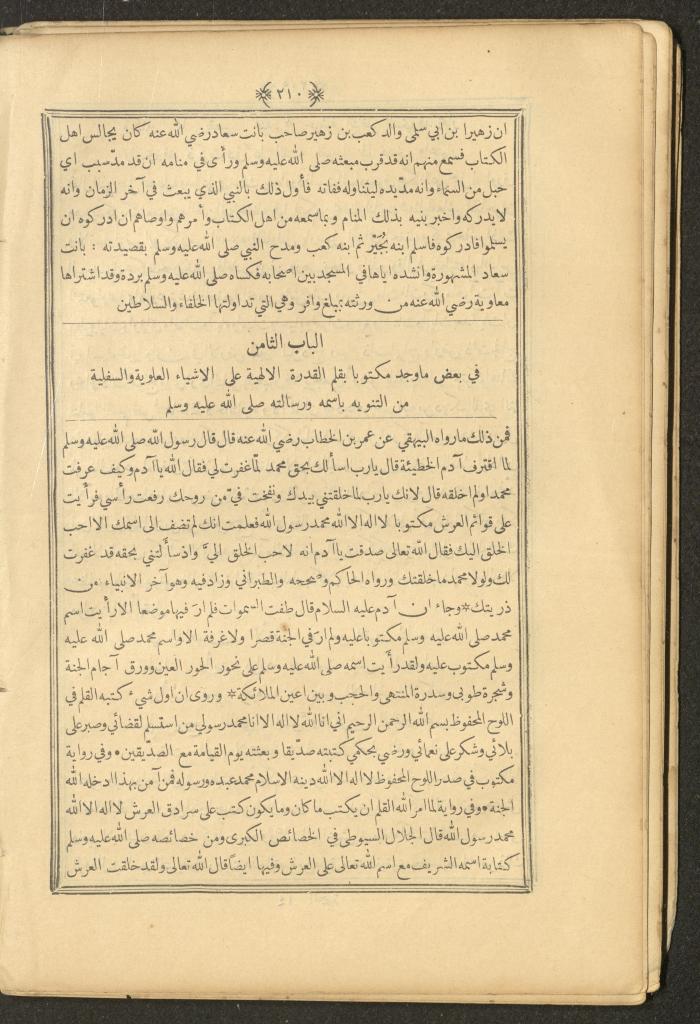 ٢١٠
ان زهيرا بن ابي سلمى والد كعب بن زهير صاحب بانت سعاد رضي الله عنه كان يجالس اهل
الكتاب فسمع منهم انه قد قرب مبعثه صلى الله عليه وسلم ورأى في منامه ان قد مدّ سبب اي
حبل من السماء وانه مدّ يده ليتناوله ففاته فأول ذلك بالنبي الذي يبعث في آخر الزمان وانه
لا يدركه واخبر بنيه بذلك المنام وبما سمعه من اهل الكتاب وأمرهم واوصاهم ان ادركوه ان
يسلموا فادركوه فاسلم ابنه بُجَيْر ثم ابنه كعب ومدح النبي صلى الله عليه وسلم بقصيدته : بانت
سعاد المشهورة وانشده اياها في المسجد بين اصحابه فكساه صلى الله عليه وسلم بردة وقد اشتراها
معاوية رضي الله عنه من ورثته بمبلغ وافر وهي التي تداولتها الخلفاء والسلاطين
الباب الثامن
في بعض ما وجد مكتوبا بقلم القدرة الالهية على الاشياء العلوية والسفلية
من التنويه باسمه ورسالته صلى الله عليه وسلم
فمن ذلك ما رواه البيهقي عن عمر بن الخطاب رضي الله عنه قال قال رسول الله صلى الله عليه وسلم
لما اقترف آدم الخطيئة قال يارب اسألك بحق محمد لمّا غفرت لي فقال الله يا آدم وكيف عرفت
محمدا ولم اخلقه قال لانك يارب لما خلقتني بيدك ونفخت فيّ من روحك رفعت رأسي فرأيت
على قوائم العرش مكتوبا لا اله الا الله محمد رسول الله فعلمت انك لم تضف الى اسمك الا احب
الخلق اليك فقال الله تعالى صدقت يا آدم انه لاحب الخلق اليّ واذ سألتني بحقه قد غفرت
لك ولولا محمد ما خلقتك ورواه الحاكم وصححه والطبراني وزاد فيه وهو آخر الانبياء من
ذريتك * وجاء ان آدم عليه السلام قال طفت السموات فلم ارَ فيها موضعا الا رأيت اسم
محمد صلى الله عليه وسلم مكتوبا عليه ولم ارَ في الجنة قصرا ولا غرفة الا واسم محمد صلى الله عليه
وسلم مكتوب عليه ولقد رأيت اسمه صلى الله عليه وسلم على نحور الحور العين وورق آجام الجنة
وشجرة طوبى وسدرة المنتهى والحجب وبين اعين الملائكة * وروى ان اول شيء كتبه القلم في
اللوح المحفوظ بسم الله الرحمن الرحيم اني انا الله لا اله الا انا محمد رسولي من استسلم لقضائي وصبر على
بلائي وشكر على نعمائي ورضي بحكمي كتبته صدّيقا وبعثته يوم القيامة مع الصدّيقين • وفي رواية
مكتوب في صدر اللوح المحفوظ لا اله الا الله دينه الاسلام محمد عبده ورسوله فمن آمن بهذا ادخله الله
الجنة • وفي رواية لما امر الله القلم ان يكتب ما كان وما يكون كتب على سرادق العرش لا اله الا الله
محمد رسول الله قال الجلال السيوطي في الخصائص الكبرى ومن خصائصه صلى الله عليه وسلم
كتابة اسمه الشريف مع اسم الله تعالى على العرش وفيها ايضاً قال الله تعالى ولقد خلقت العرش